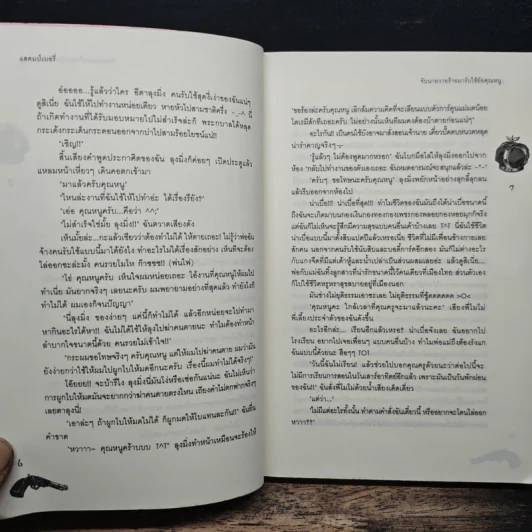 แสตมป์เบอรี่
อ๋อออออ...รู้แล้วว่าใคร อีตาลุงมิ่ง คนรับใช้สุดงี่เง่าของฉันแน่ๆ
ดูสิเนี่ย ฉันใช้ให้ไปทำงานหน่อยเดียว หายหัวไปสามชาติครึ่ง -_-^ นี่
ถ้าเกิดทำงานที่ได้รับมอบหมายไปไม่สำเร็จล่ะก็ พระกบาลได้หลุด
กระเด้งกระเด็นกระดอนออกจากบ่าไปสามร้อยโยชน์แน่!!
'เชิญ!!'
สิ้นเสียงคำพูดประกาศิตของฉัน ลุงมิ่งก็ค่อยๆ เปิดประตูแล้ว
แหลมหน้าเหี่ยวๆ เดินคอตกเข้ามา
'มาแล้วครับคุณหนู'
'ไหนล่ะงานที่ฉันใช้ให้ไปทำอ่ะ ได้เรื่องรึยัง!'
'เอ่อ คุณหนูครับ...คือว่า ^^;'
'ไม่สำเร็จใช่มั้ย!!' ฉันตวาดเสียงดัง
เห็นมั้ยล่ะ...กะแล้วเชียวว่าต้องทำไม่ได้ ให้ตายเถอะ! ไม่รู้ว่าพ่อฉัน
จ้างคนรับใช้แบบนี้มาได้ยังไง ทำอะไรไม่ได้เรื่องสักอย่าง เห็นทีจะต้อง
ไล่ออกซะล่ะมั้ง คนรวยไมโห ก๊าซซซ!! (พ่นไฟ)
'โธ่ คุณหนูครับ เห็นใจผมหน่อยเถอะ ใช้งานที่คุณหนูให้ผมไป
ทำเนี่ย มันยากจริงๆ เลยนะครับ ผมพยายามอย่างที่สุดแล้ว ทำยังไงก็
ทำไม่ได้ ผมเองก็จนปัญญา'
'นี่ลุงมิ่ง ของง่ายๆ แค่นี้ก็ทำไม่ได้ แล้วอีกหน่อยจะไปทำมา
หากินอะไรได้หา!! ฉันไม่ได้ใช้ให้ลุงไปฆ่าคนตายนะ ทำไมต้องทำหน้า
ลำบากใจขนาดนี้ด้วย คนรวยไม่เข้าใจ!'
'กระผมขอโทษจริงๆ ครับคุณหนู แต่ให้ผมไปฆ่าคนตาย ผมว่ามัน
ยังง่ายกว่าใช้ให้ผมไปผูกโบให้มดอีกนะครับ เรื่องนี้ผมทำไม่ได้จริงๆ!'
โอ๊ยยย!! จะบ้ารึไง ลุงมิ่งนี่มันโง่หรือเซ่อกันแน่นะ ฉันไม่เห็นว่า
การผูกโบให้มดมันจะยากกว่าฆ่าคนตายตรงไหน เถียงคำไม่ตกฟากจริงๆ
เลยตาลุงนี่!
'เอาล่ะๆ ถ้าผูกโบให้มดไม่ได้ ก็ผูกมดให้โบแทนละกัน!!' ฉันยื่น
คำขาด
'หวาาา~ คุณหนูคร้าบบบ T^T' ลุงมิ่งทำหน้าเหมือนจะร้องไห้
6
จับนายวายร้ายมารับใช้ยัยคุณหนู
'ขอร้องล่ะครับคุณหนู เลิกล้มความคิดที่จะเลียนแบบตัวการ์ตูนแม่มดน้อย
โดเรมีสักทีเถอะครับ ไม่อย่างนั้นเห็นทีผมคงต้องบ้าตายก่อนแน่ๆ'
อะไรกัน!! เป็นคนใช้บังอาจมาสั่งสอนเจ้านาย เดี๋ยวปั๊ดตบหนวดหลุด
น่ารำคาญจริงๆ -_-
'รู้แล้วๆ ไม่ต้องพูดมากหรอก' ฉันโบกมือไล่ให้ลุงมิ่งออกไปจาก
ห้อง 'กลับไปทำงานของตัวเองเถอะ ฉันหมดอารมณ์จะสนุกแล้วล่ะ -_-'
'ครับๆ ขอโทษนะครับคุณหนู' ลุงมิ่งพยักหน้าอย่างลุกลี้ลุกลน
แล้วรีบออกจากห้องไป
น่าเบื่อ!!! น่าเบื่อที่สุด!!! ทำไมชีวิตของฉันมันถึงได้น่าเบื่อขนาดนี้
ถึงฉันจะเกิดมาบนกองเงินกองทองกองเพชรกองพลอยกองหอยมุกก็จริง
แต่ฉันก็ไม่เห็นจะรู้สึกมีความสุขแบบคนอื่นเค้าบ้างเลย T^T นี่ฉันใช้ชีวิต
น่าเบื่อแบบนี้มาตั้งสิบแปดปีแล้วเหรอเนี่ย ชีวิตที่ไม่มีเพื่อนข้างกายเลย
สักคน นอกจากพวกคนรับใช้นับสิบและบอดี้การ์ดอีกสองร้อย มิหนำซ้ำ
7
'คุณหนูคะ ใกล้เวลาที่คุณครูจะมาแล้วนะคะ' เสียงพี่ไมไม่
พี่เลี้ยงประจำตัวของฉันดังขึ้น
อะไรอีกล่ะ... เรียนอีกแล้วเหรอ! น่าเบื่อจังเลย ฉันอยากไป
โรงเรียน อยากไปเจอเพื่อนๆ แบบคนอื่นบ้าง ทำไมพ่อแม่ถึงต้องรังแก
ฉันแบบนี้ด้วยนะ ฮือๆๆ TOT
'วันนี้ฉันไม่เรียน! แล้วช่วยไปบอกคุณครูด้วยนะว่าต่อไปนี้จะ
ไม่มีการเรียนการสอนในวันเสาร์อาทิตย์อีกแล้ว เพราะมันเป็นวันพักผ่อน
ของฉัน!!' ฉันสั่งพี่ไมไม่ด้วยน้ำเสียงเด็ดเดี่ยว
'แต่ว่า...'
'ไม่มีแต่อะไรทั้งนั้น ทำตามคำสั่งฉันเดี๋ยวนี้ หรืออยากจะโดนไล่ออก
หวาาา!?'